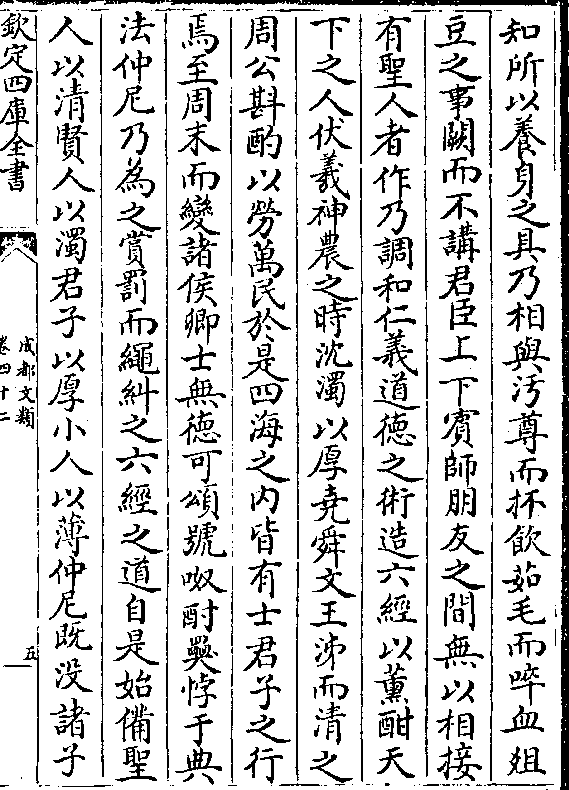 知所以養身之具乃相與汚尊而抔飲茹毛而啐血俎
豆之事闕而不講君臣上下賓師朋友之間無以相接
有聖人者作乃調和仁義道徳之術造六經以薰酣天
下之人伏羲神農之時沈濁以厚堯舜文王泲而清之
周公斟酌以勞萬民於是四海之内皆有士君子之行
焉至周末而變諸侯卿士無徳可頌號呶酎𡚁悖于典
法仲尼乃為之賞罰而繩糾之六經之道自是始備聖
人以清賢人以濁君子以厚小人以薄仲尼既没諸子
欽定四庫全書
成都文類
卷四十二
五